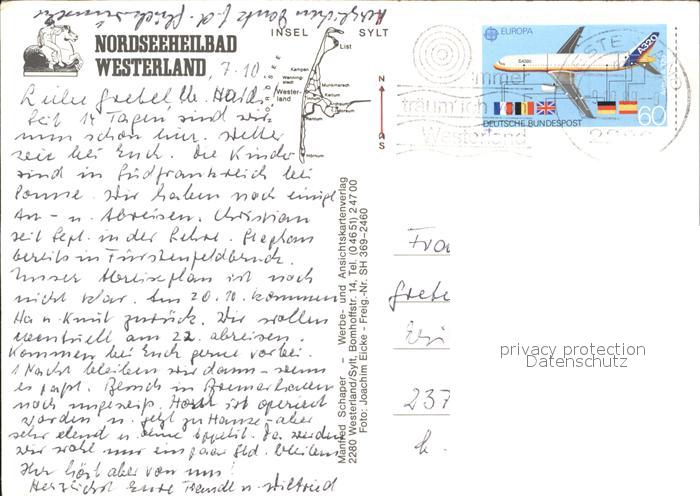 Herzlichen Dank f. d. Glückwünsche
NORDSEEHEILBAD
WESTERLAND, 7.10.
INSEL SYLT
List
Kampen
Wenning-
stedt
Munkmarsch
Wester-
land
Keitum
Rantum
Hörnum
NORDSEE
N
S
Liebe Gretel, lb. Haid
Seit 14 Tagen sind wir
nun schon hier. Wetter
wie bei Euch. Die Kinder
sind in Südfrankreich bei
Sonne. Wir haben noch einige
An- u. Abreisen. Christian
seit Sept. in der Lehre. Stephan
bereits in Fürstenfeldbruck.
Unser Abreiseplan ist noch
nicht klar. Am 20.10. kommen
Ha u. Knut zurück. Wir wollen
eventuell am 22. abreisen.
Kommen bei Euch gerne vorbei.
1 Nacht bleiben wir dann – wenn
es paßt. Besuch in Bremerhaven
noch ungewiß. Horst ist operiert
worden u. jetzt zu Hause – aber
sehr elend u. ohne Appetit. Da werden
wir wohl nur ein paar Std. bleiben.
Ihr hört aber von uns!
Herzlichst Eure Traudl u. Wilfried
Manfred Schaper – Werbe- und Ansichtskartenverlag
2280 Westerland/Sylt, Bomhoffstr. 14, Tel. (04651) 24700
Foto: Joachim Eicke - Freig.-Nr. SH 369-2460
EUROPA
A320
immer
träum' ich
Westerland
DEUTSCHE BUNDESPOST
60
Fra
Grete
237
privacy protection
Datenschutz